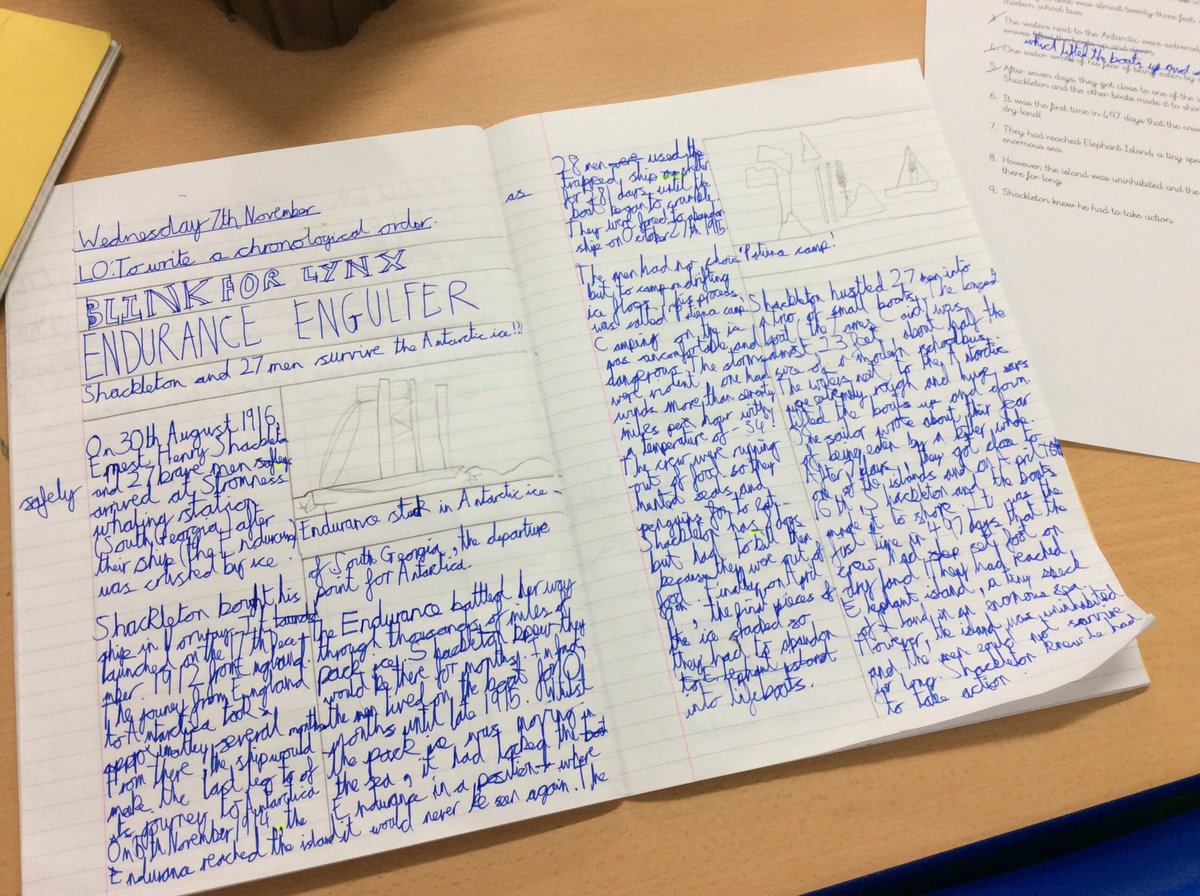 Wednesday 7th November
LO: To write a chronological order.
BLINK FOR LYNX
ENDURANCE ENGULFER
Shackleton and 27 men survive the Antarctic ice!!!
On 30th August 1916,
Ernest Henry Shackleton
and 27 brave men
safely
arrived at Stromness
whaling station
(South Georgia) after
their ship (the Endurance)
was crushed by ice
Endurance stuck in Antarctic ice
Shackleton bought his
ship in Norway. It
launched on the 17th Dece
mber 1912 from
The journey from England
to Antarctica took
several months
From there the ship would
make the last leg of
its journey to Antarctica
On 5th November 1914, the
Endurance reached the island
of South Georgia, the departure
point for Antarctica.
the Endurance battled her way
through thousands of miles of
pack ice. Shackleton knew they
would be there for months. In fact
the men lived on the boat for 10
months until late 1915. Whilst
the pack ice was moving in
the sea, it had locked the boat
Endurance in a position where
it would never be seen again. The
28 men were used the
trapped ship as shelter
for 8 days, until the
boat began to crumble.
They were forced to abandon
ship on October 27th 1915.
'Patience camp'
The men had not choice
but to camp on drifting
ice flogs, this process
was called Patience camp.
Camping on the ice
was uncomfortable and
dangerous. The storms
were violent, one had
winds more than seventy
miles per hour with
a temperature of -34!
The crew were running
out of food so they
hunted seals and
penguins for to eat.
Shackleton has dogs
but had to kill them
because they were out of
food. Finally on April
, the final pieces of
the ice
they had to abandon
to Elephant island
into lifeboats.
Shackleton hustled 27 men into
a trio of small boats, the longest
boat (the James Caird) was
almost 23 feet, about half the
size of a modern school bus.
The waters next to the Antarctic
were extremely rough and huge waves
lifted the boats up and down.
One sailor wrote about their fear
of being eaten by a killer whale.
After 7 days, they got close to
one of the islands and on April
16th, Shackleton and the boats
made it to shore. It was the
first time in 497 days that the
crew had step set foot on
dry land! They had reached
Elephant island, a tiny speck
of land in an enormous sea.
However, the island was uninhabited
and the men could not survive
for long. Shackleton knew he had
to take action.
boat was almost twenty three feet
modern school bus.
3. The waters next to the Antarctic were extremel
waves lifted the boats up and down.
which lifted the boats up and
4. One sailor wrote of his fear of being eaten by
5. After seven days, they got close to one of the
Shackleton and the other boats made it to sho
6. It was the first time in 497 days that the cre
dry land!
7. They had reached Elephant Island, a tiny spe
enormous sea.
8. However the island was uninhabited and the
there for long.
9. Shackleton knew he had to take action.